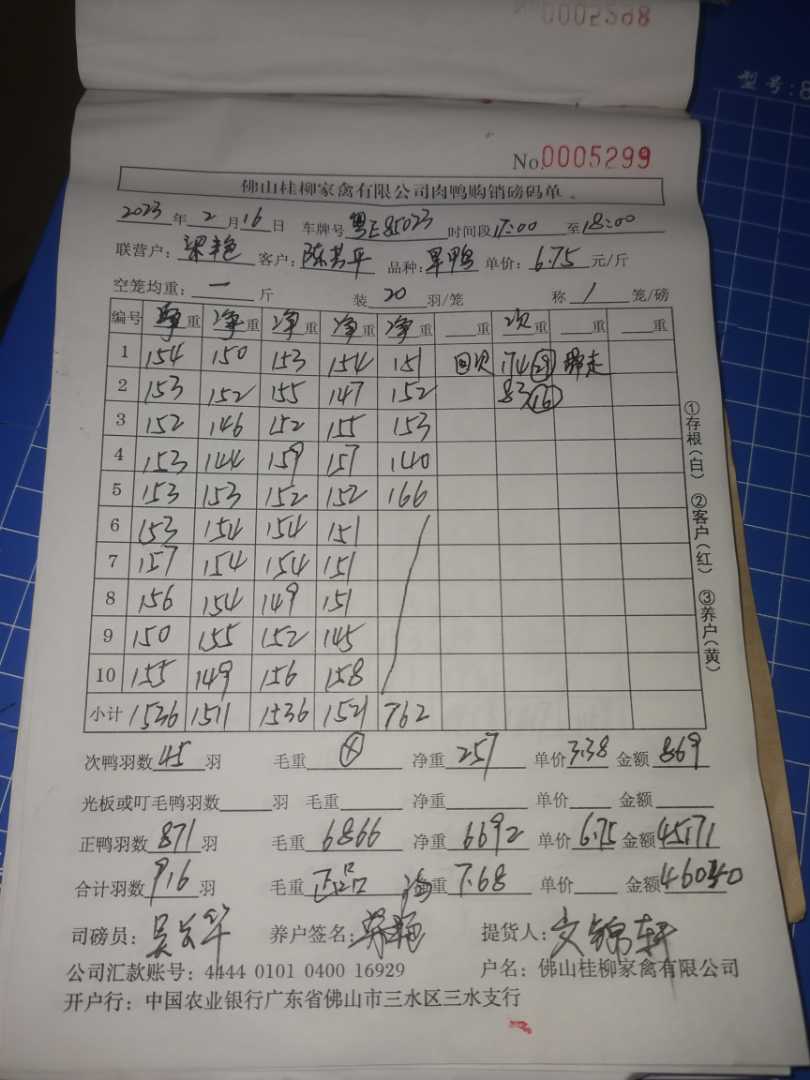 0002588
型号:8
No.0005299
佛山桂柳家禽有限公司肉鸭购销磅码单
2023年2月16日 车牌号粤E85023 时间段17:00至18:00
联营户: 梁艳 客户: 陈芳平 品种: 旱鸭 单价: 6.75 元/斤
空笼均重: 一 斤 装 20 羽/笼 称 1 笼/磅
编号 净重 净重 净重 净重 净重 重 次重 重 重
1 154 150 153 154 151 回次 174(29) 绑走
2 153 152 155 147 152 83(16)
3 152 146 152 155 153
4 153 144 159 157 140
5 153 153 152 152 166
6 153 154 154 151
7 157 154 154 151
8 156 154 149 151
9 150 155 152 145
10 155 149 156 158
小计 1536 1511 1536 1521 762
①存根(白) ②客户(红) ③养户(黄)
次鸭羽数45羽 毛重 净重257 单价3.38 金额869
光板或叮毛鸭羽数 羽 毛重 净重 单价 金额
正鸭羽数871羽 毛重6866 净重6692 单价6.75 金额45171
合计羽数916羽 毛重 正品 净重7.68 单价 金额46040
司磅员: 养户签名: 提货人: 文锦轩
公司汇款账号: 4444 0101 0400 16929 户名: 佛山桂柳家禽有限公司
开户行: 中国农业银行广东省佛山市三水区三水支行